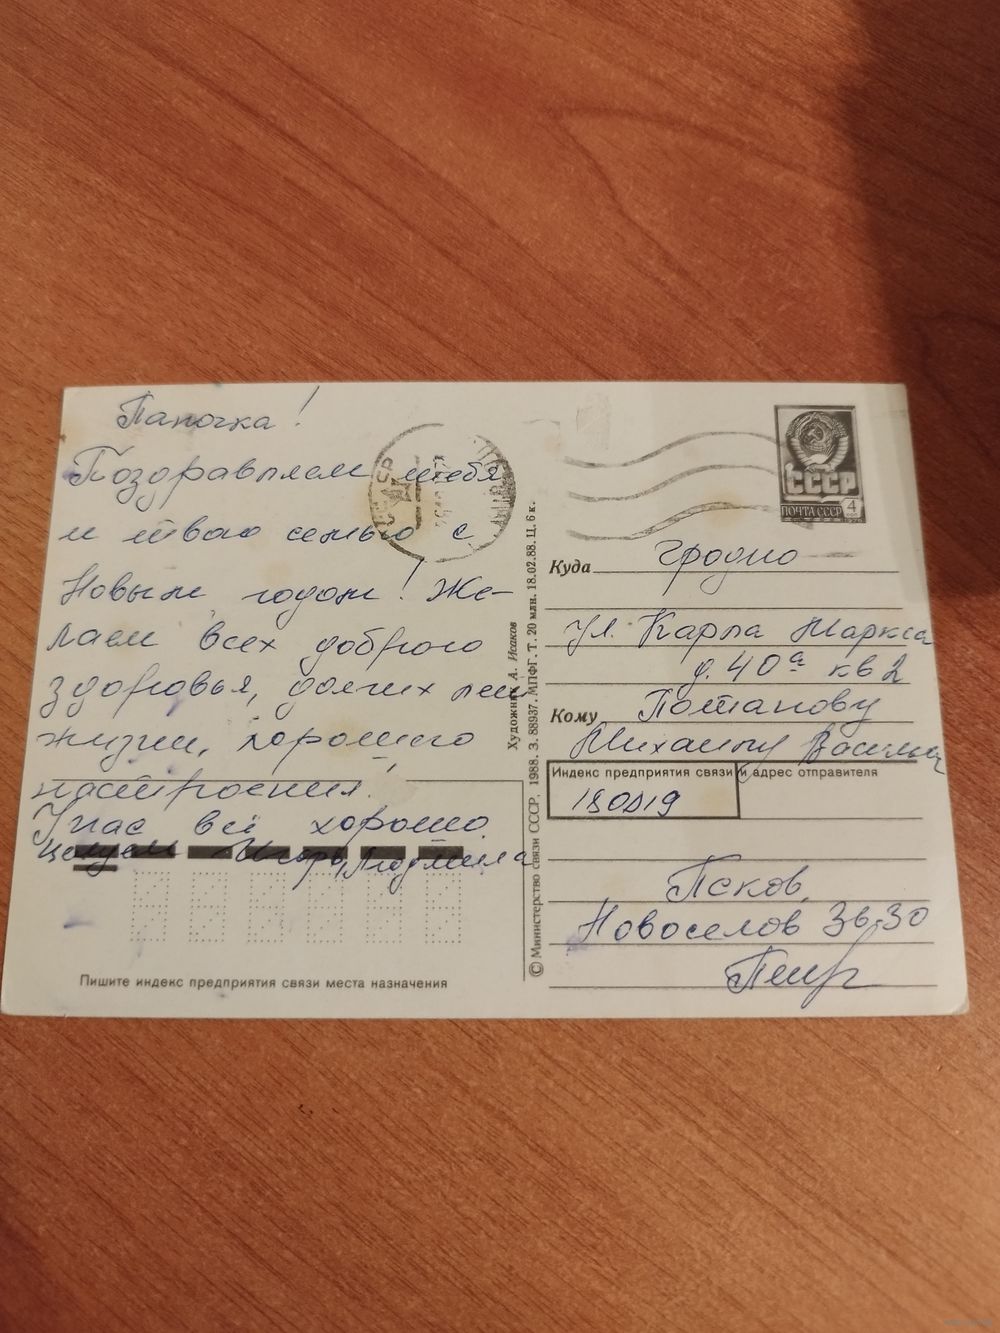 Папочка!
Поздравляем тебя
и твою семью с
Новым годом! Же-
лаем всех доброго
здоровья, долгих лет
жизни, хорошего
настроения!
У нас всё хорошо.
Целуем Игорь, Людмила
Пишите индекс предприятия связи места назначения
СССР
Художник А. Исаков
© Министерство связи СССР, 1988. З. 88937. МПФГ. Т. 20 млн. 18.02.88. Ц. 6 к.
СССР
ПОЧТА СССР 4
Куда Гродно
ул. Карла Маркса
д. 40а кв 2
Кому Потапову
Михаилу
Индекс предприятия связи и адрес отправителя
180019
Псков,
Новоселов 36-30